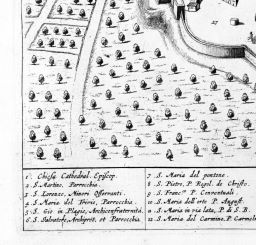 27
1. Chiesa Cathedral. Episcop.
2. S. Martino. Parrochia.
3. S. Lorenzo, Minori Osservanti.
4. S. Maria del Parrochia.
5. S. Gio: in Archiconfraternità.
6. S. Salvatore, et Parrochia.
7. S. Maria del pontone.
8. S. Pietro, P. Regol. de Christo.
9. S. Franc.co P. Conventuali.
10. S. Maria dell'orto P. Augost.
11. S. Maria in via lata, P. di S. B.
12. S. Maria del Carmine, P. Carmel